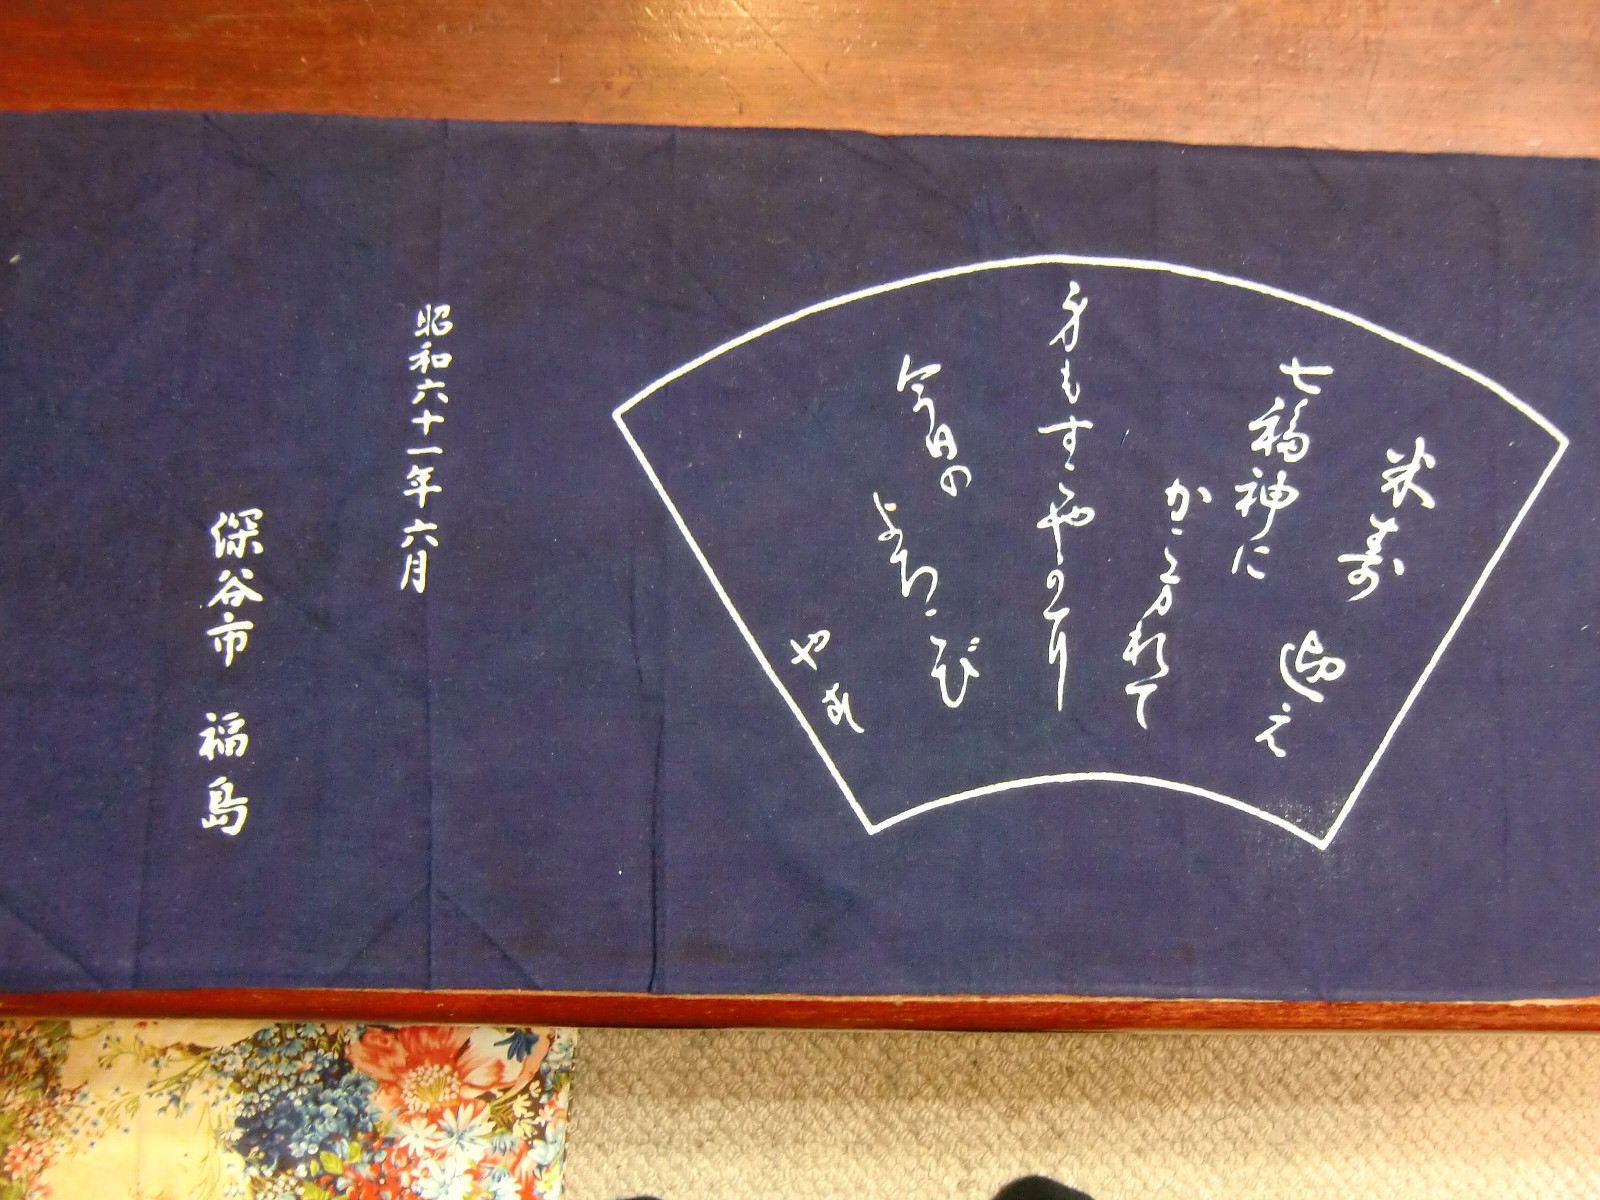 米寿 迎え
七福神に
かこまれて
身もすこやかに
今日の
よろこび
やす
昭和六十一年六月
深谷市 福島